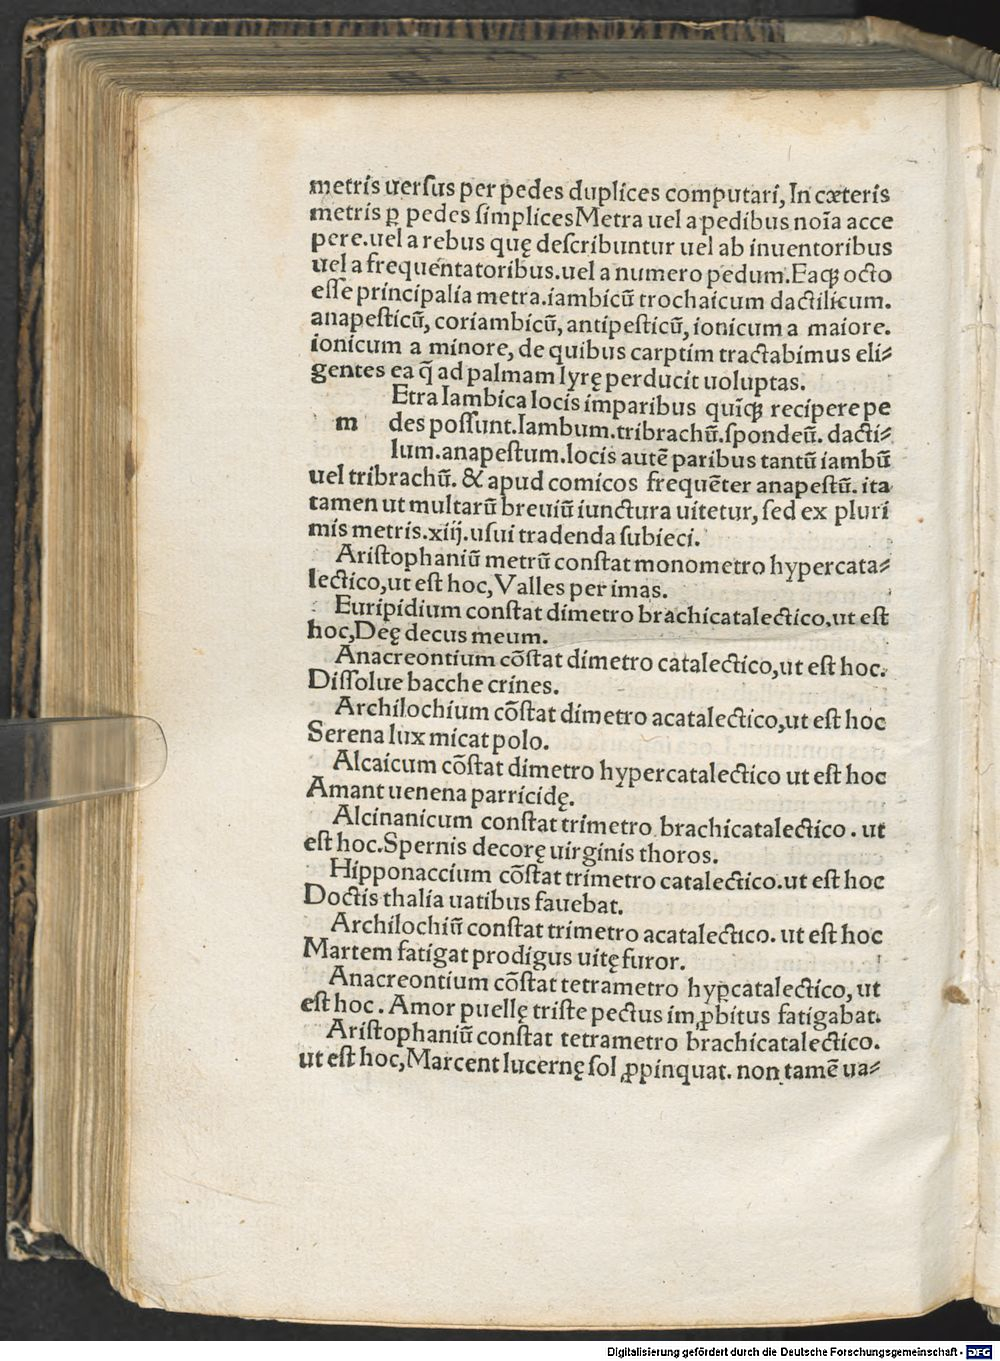 metris uerſus per pedes duplices computari, In cæteris
metris ꝑ pedes ſimplicesMetra uel a pedibus noı̄a acce
pere.uel a rebus quę deſcribuntur uel ab inuentoribus
uel a frequentatoribus.uel a numero pedum.Eaqꝫ octo
eſſe principalia metra.iambicū trochaicum dactilicum.
anapeſticū, coriambicū, antipeſticū, ionicum a maiore.
ionicum a minore, de quibus carptim tractabimus eli⸗
gentes ea q̄ ad palmam lyrę perducit uoluptas.
Etra Iambica locis imparibus quı̄qꝫ recipere pe
m des poſſunt.Iambum.tribrachū.ſpondeū. dacti⸗
lum.anapeſtum.locis autē paribus tantū iambū
uel tribrachū. & apud comicos frequēter anapeſtū. ita
tamen ut multarū breuiū iunctura uitetur, ſed ex pluri
mis metris.xiij.uſui tradenda ſubieci.
Ariſtophaniū metrū conſtat monometro hypercata⸗
lectico,ut eſt hoc, Valles per imas.
Euripidium conſtat dimetro brachicatalectico,ut eſt
hoc,Deę decus meum.
Anacreontium cōſtat dimetro catalectico,ut eſt hoc.
Diſſolue bacche crines.
Archilochium cōſtat dimetro acatalectico,ut eſt hoc
Serena lux micat polo.
Alcaicum cōſtat dimetro hypercatalectico ut eſt hoc
Amant uenena parricidę.
Alcinanicum conſtat trimetro brachicatalectico. ut
eſt hoc.Spernis decorę uirginis thoros.
Hipponaccium cōſtat trimetro catalectico.ut eſt hoc
Doctis thalia uatibus fauebat.
Archilochiū conſtat trimetro acatalectico. ut eſt hoc
Martem fatigat prodigus uitę furor.
Anacreontium cōſtat tetrametro hyꝑcatalectico, ut
eſt hoc. Amor puellę triſte pectus imꝓbitus fatigabat.
Ariſtophaniū conſtat tetrametro brachicatalectico.
ut eſt hoc,Marcent lucernę ſol ꝓpinquat. non tamē ua⸗
Digitalisierung gefördert durch die Deutsche Forschungsgemeinschaft - DFG